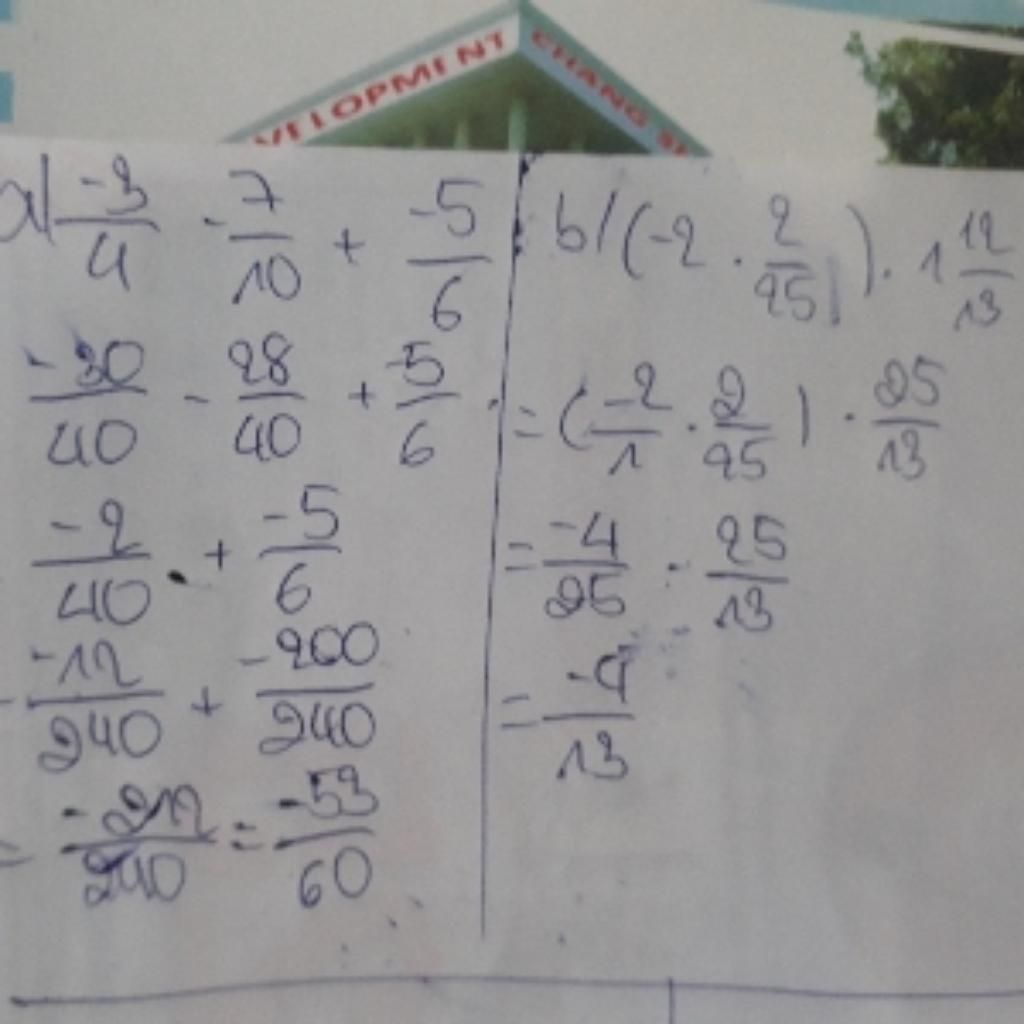 VELOPMENT CHANG
a/ -3/4 - 7/10 + -5/6
-30/40 - 28/40 + -5/6
-2/40 + -5/6
-12/240 + -200/240
= -212/240 = -53/60
b/ (-2 . 2/25) . 1 12/13
= (-2/1 . 2/25) . 25/13
= -4/25 . 25/13
= -4/13